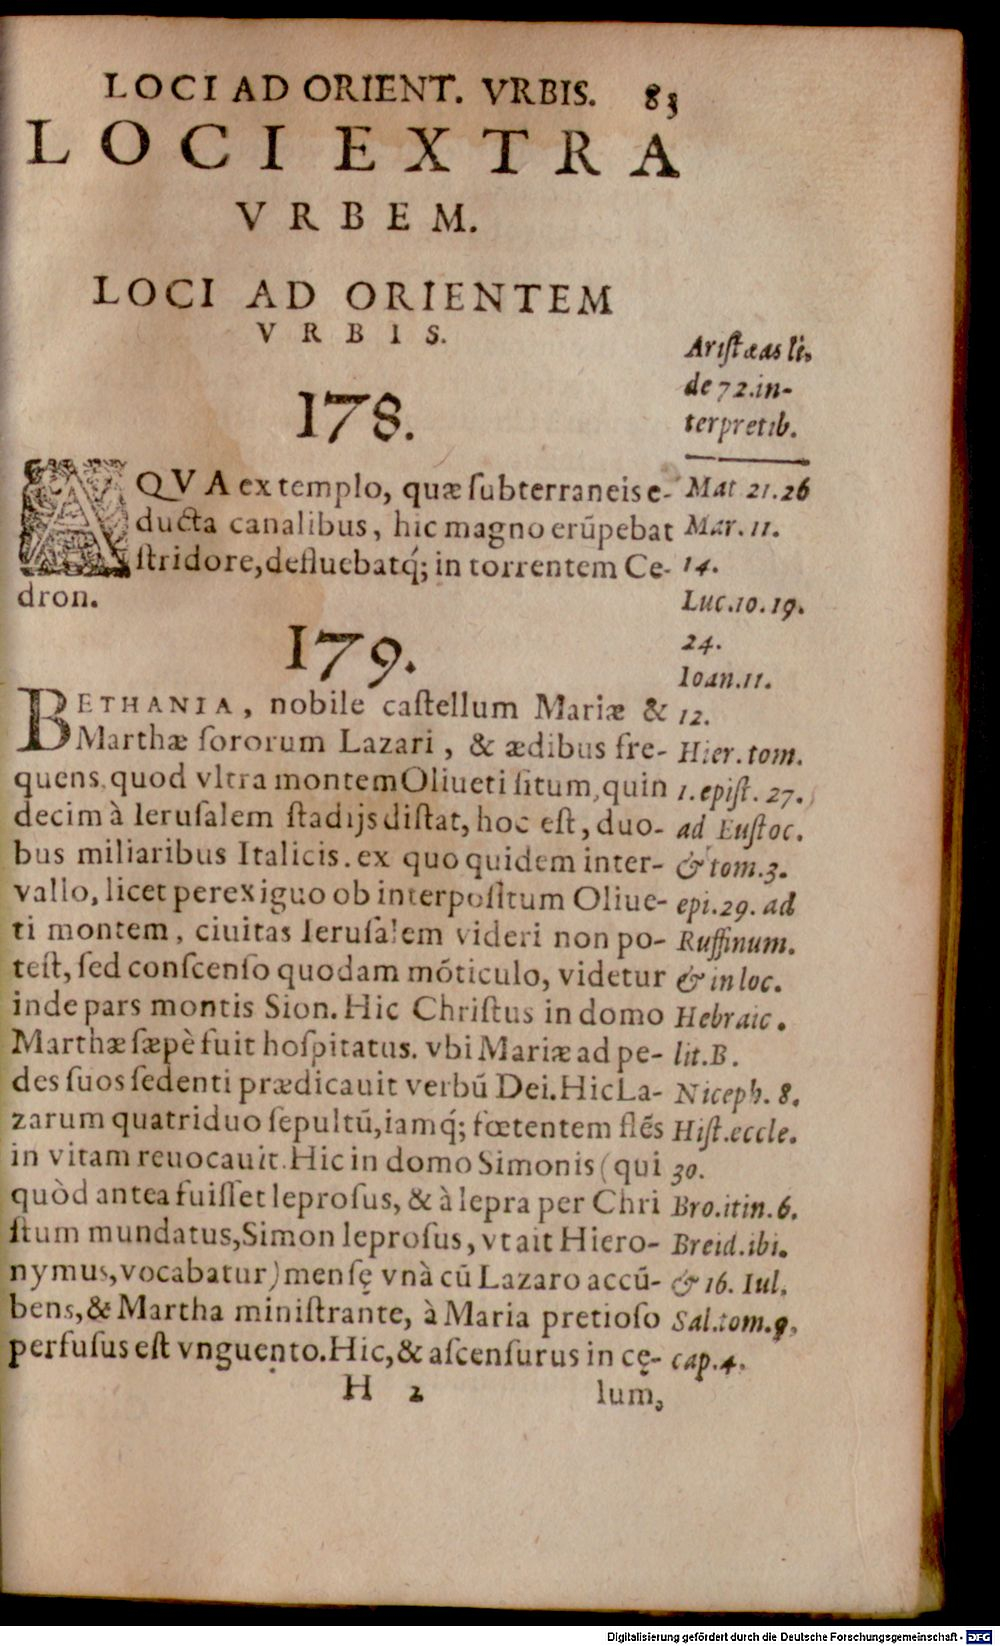 LOCI AD ORIENT. VRBIS. 83
LOCI EXTRA
VRBEM.
LOCI AD ORIENTEM
VRBIS.
178.
AQVA ex templo, quæ ſubterraneis e-
ducta canalibus, hic magno erūpebat
ſtridore, defluebatq́; in torrentem Ce-
dron.
179.
BETHANIA, nobile caſtellum Mariæ &
Marthæ ſororum Lazari, & ædibus fre-
quens, quod vltra montem Oliueti ſitum, quin
decim à Ieruſalem ſtadijs diſtat, hoc eſt, duo-
bus miliaribus Italicis. ex quo quidem inter-
vallo, licet perexiguo ob interpoſitum Oliue-
ti montem, ciuitas Ieruſalem videri non po-
teſt, ſed conſcenſo quodam mōticulo, videtur
inde pars montis Sion. Hic Chriſtus in domo
Marthæ ſæpè fuit hoſpitatus. vbi Mariæ ad pe-
des ſuos ſedenti prædicauit verbū Dei. Hic La-
zarum quatriduo ſepultū, iamq́; fœtentem flēs
in vitam reuocauit. Hic in domo Simonis (qui
quòd antea fuiſſet leproſus, & à lepra per Chri
ſtum mundatus, Simon leproſus, vt ait Hiero-
nymus, vocabatur) menſę vnà cū Lazaro accū-
bens, & Martha miniſtrante, à Maria pretioſo
perfuſus eſt vnguento. Hic, & aſcenſurus in cę-
H 2 lum,
Ariſtæas li.
de 72. in-
terpretib.
Mat 21.26
Mar. 11.
14.
Luc. 10. 19.
24.
Ioan. 11.
12.
Hier. tom.
1. epiſt. 27.
ad Euſtoc.
& tom. 3.
epi. 29. ad
Ruffinum.
& in loc.
Hebraic.
lit. B.
Niceph. 8.
Hiſt. eccle.
30.
Bro. itin. 6.
Breid. ibi.
& 16. Iul.
Sal. tom. 9.
cap. 4.
Digitalisierung gefördert durch die Deutsche Forschungsgemeinschaft - DFG